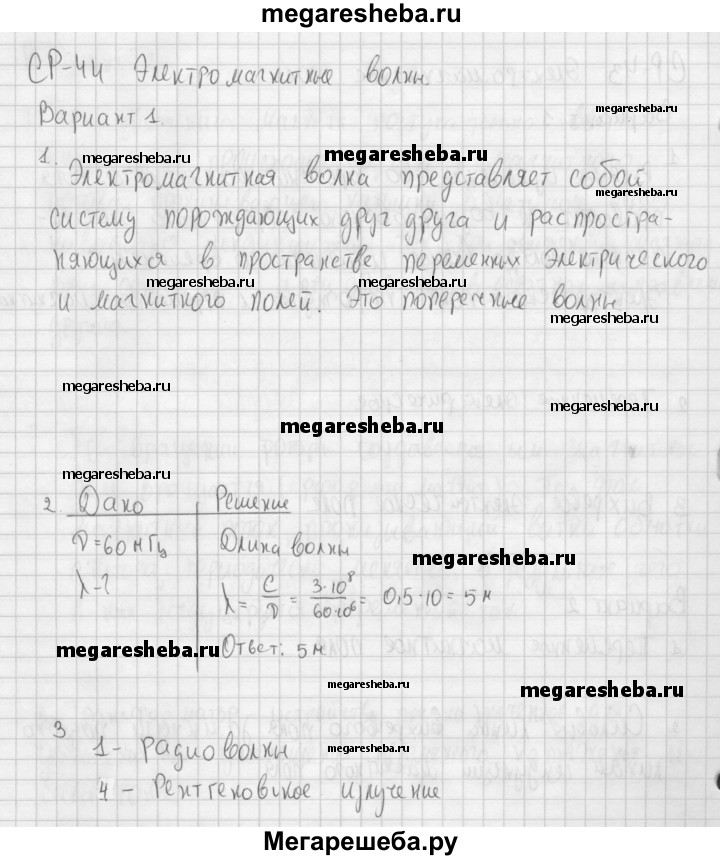 megaresheba.ru
СР-44 Электромагнитные волны.
Вариант 1.
megaresheba.ru
1.
megaresheba.ru
megaresheba.ru
Электромагнитная волна представляет собой
megaresheba.ru
систему порождающих друг друга и распростра-
няющихся в пространстве переменных электрического
megaresheba.ru
megaresheba.ru
и магнитного полей. Это поперечные волны
megaresheba.ru
megaresheba.ru
megaresheba.ru
megaresheba.ru
megaresheba.ru
2. Дано
Решение
ν = 60 мГц
Длина волны
megaresheba.ru
λ - ?
λ = C/ν = 3·10⁸/60·10⁶ = 0,5·10 = 5 м
megaresheba.ru
Ответ: 5 м
megaresheba.ru
megaresheba.ru
3
1 - радиоволны
megaresheba.ru
4 - Рентгеновское излучение
megaresheba.ru
Мегарешеба.ру